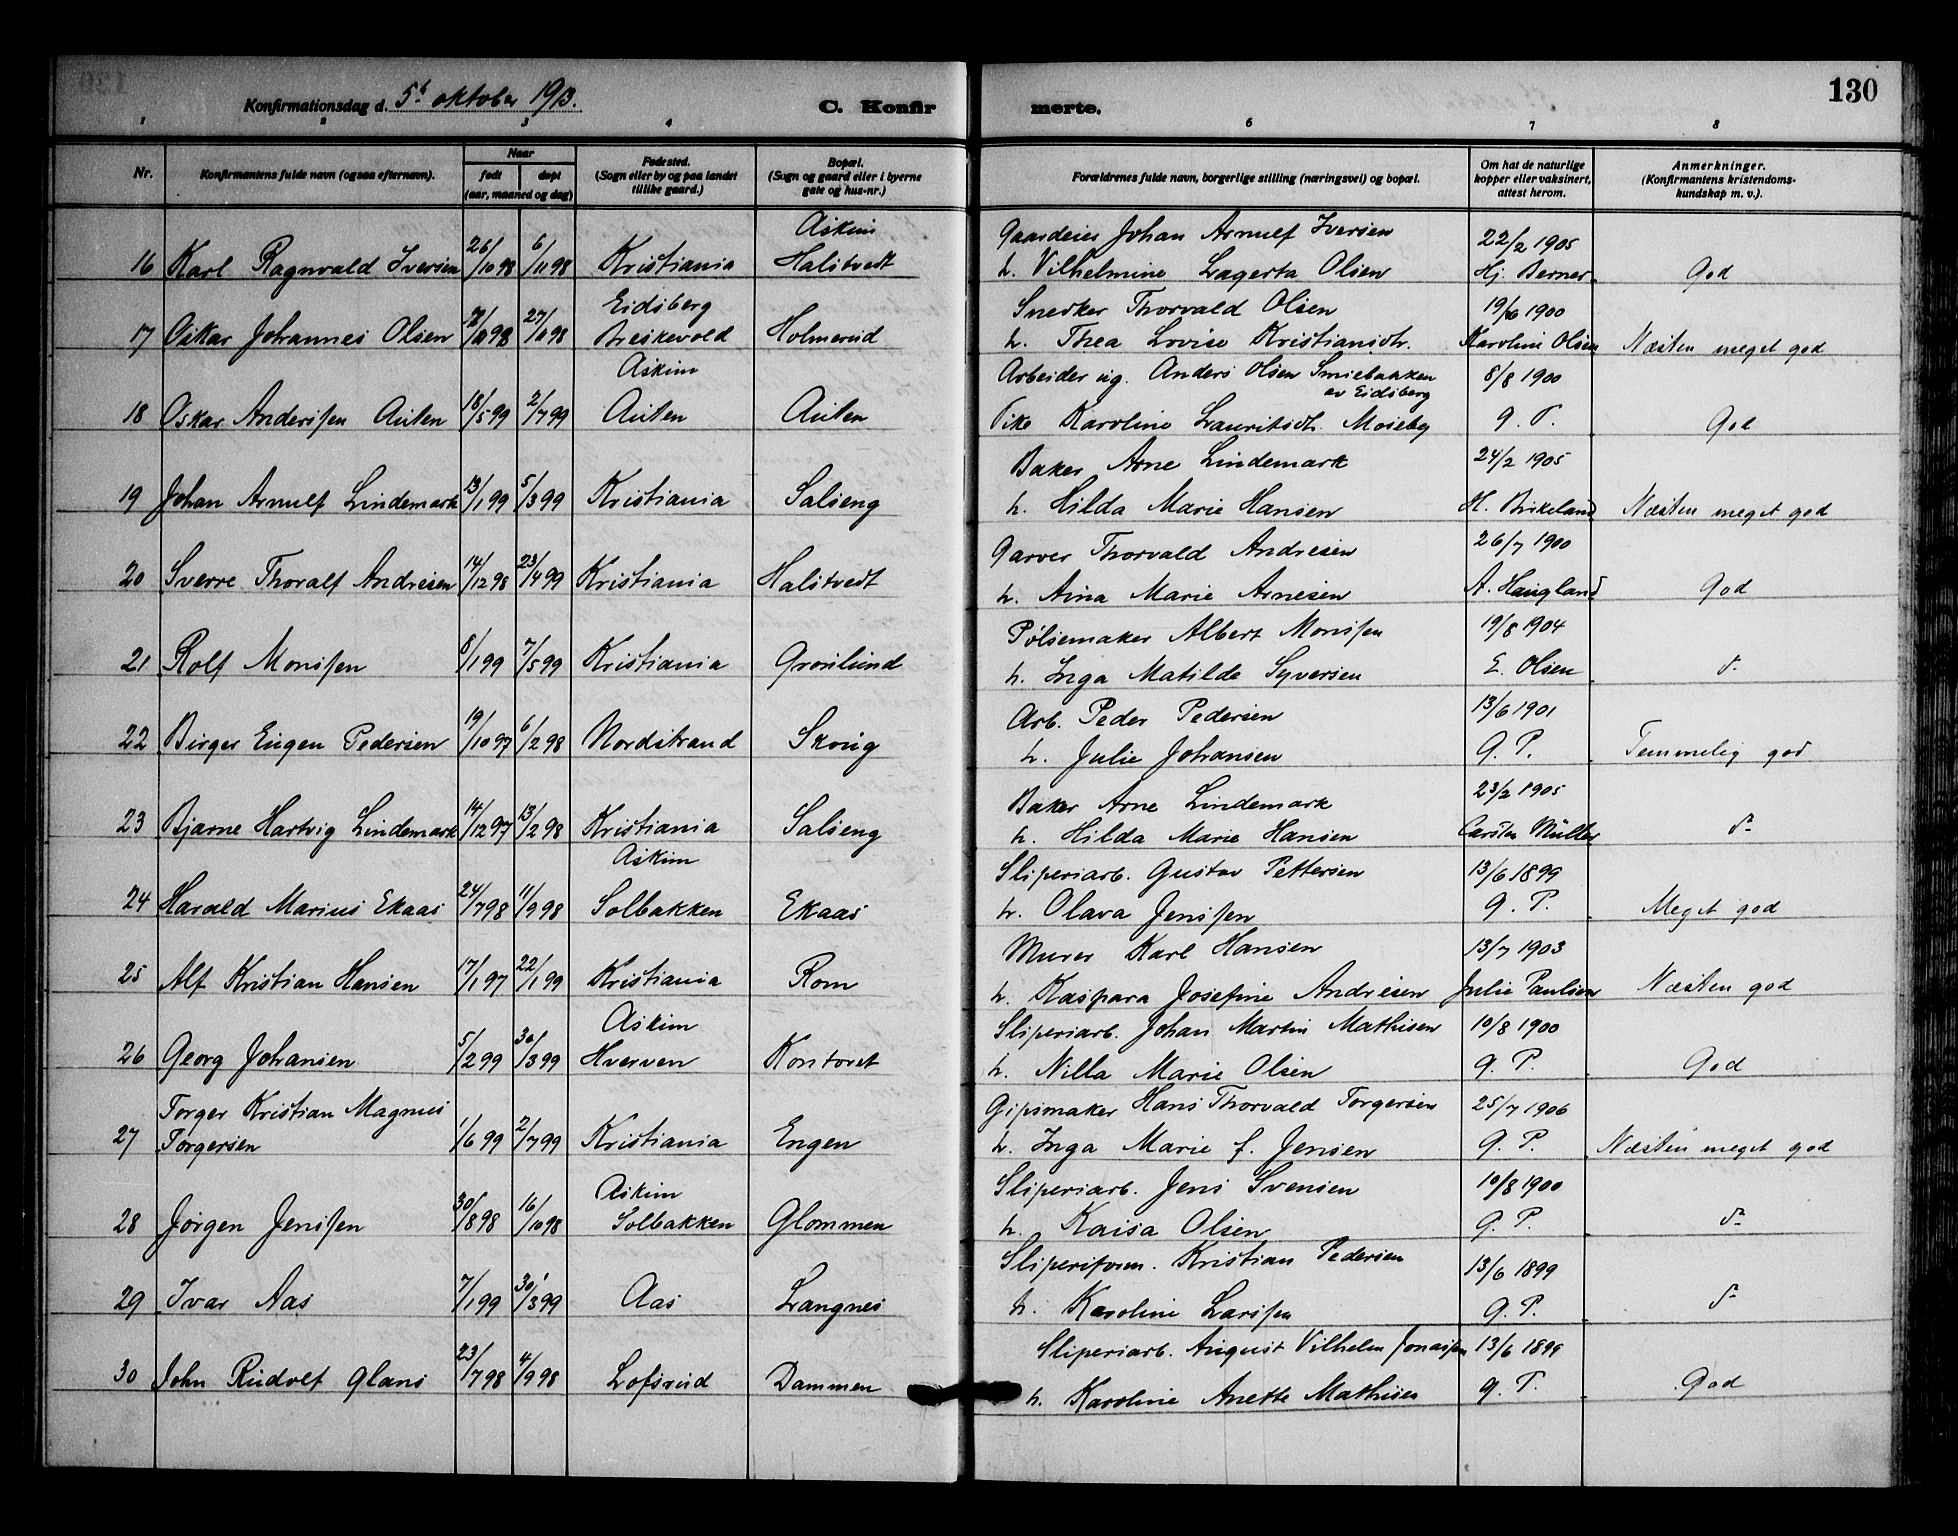 130
Konfirmationsdag d. 5t oktober 1913. C. Konfirmerte.
1 2 3 4 6 7 8
Nr. Konfirmantens fulde navn (ogsaa efternavn). Naar født døpt (aar, maaned og dag) Fødested. (Sogn eller by og paa landet tillike gaard.) Bopæl. (Sogn og gaard eller i byerne gate og hus-nr.) Forældrenes fulde navn, borgerlige stilling (næringsvei) og bopæl. Om hat de naturlige kopper eller vaksinert, attest herom. Anmerkninger. (Konfirmantens kristendoms-kundskap m. v.).
Askim Gaardeier Johan Arnulf Iversen 22/2 1905
16 Karl Ragnvald Iversen 26/10 98 6/11 98 Kristiania Halstvedt h. Vilhelmine Lagerta Olsen Hj. Berner God
Eidsberg Snedker Thorvald Olsen 19/6 1900
17 Oskar Johannes Olsen 98 27/11 98 Breskevold Holmerud h. Thea Lovise Kristiansdtr. Karoline Olsen Næsten meget god
Askim Arbeider ug. Anders Olsen Smiebakken 8/8 1900
av Eidsberg
18 Oskar Anderssen Auten 18/5 99 2/7 99 Auten Auten Pike Karoline Lauritsdtr. Moseby G. P. God
Baker Arne Lindemark 24/2 1905
19 Johan Arnulf Lindemark 13/1 99 5/3 99 Kristiania Salseng h. Hilda Marie Hansen H. Birkeland Næsten meget god
Garver Thorvald Andresen 26/7 1900
20 Sverre Thoralf Andresen 14/12 98 23/4 99 Kristiania Halstvedt h. Aina Marie Arnesen A. Haugland God
Pølsemaker Albert Monssen 19/8 1904
21 Rolf Monssen 8/1 99 7/5 99 Kristiania Grønlund h. Inga Matilde Syversen E. Olsen d-
Arb. Peder Pedersen 13/6 1901
22 Birger Eugen Pedersen 19/10 97 6/2 98 Nordstrand Skoug h. Julie Johansen G. P. Temmelig god
Baker Arne Lindemark 23/2 1905
23 Bjarne Hartvig Lindemark 14/12 97 13/2 98 Kristiania Salseng h. Hilda Marie Hansen Carsten Müller d-
Askim Sliperiarb. Gustav Pettersen 13/6 1899
24 Harald Marius Ekaas 24/7 98 11/9 98 Solbakken Ekaas h. Olava Jenssen G. P. Meget god
Murer Karl Hansen 13/7 1903
25 Alf Kristian Hansen 17/1 97 22/1 99 Kristiania Rom h. Kaspara Josefine Andresen Julie Paulsen Næsten god
Askim Sliperiarb. Johan Martin Mathisen 10/8 1900
26 Georg Johansen 5/2 99 30/3 99 Hverven Kontoret h. Nilla Marie Olsen G. P. God
Torger Kristian Magnus Gipsmaker Hans Thorvald Torgersen 25/7 1906
27 Torgersen 1/6 99 2/7 99 Kristiania Engen h. Inga Marie f. Jensen G. P. Næsten meget god
Askim Sliperiarb. Jens Svensen 10/8 1900
28 Jørgen Jenssen 30/8 98 16/10 98 Solbakken Glommen h. Kaisa Olsen G. P. d-
Sliperiform. Kristian Pedersen 13/6 1899
29 Ivar Aas 7/1 99 30/3 99 Aas Langnes h. Karoline Larssen G. P. d-
Sliperiarb. August Vilhelm Jonassen 13/6 1899
30 John Rudolf Glans 23/7 98 4/9 98 Lofsrud Dammen h. Karoline Anette Mathisen G. P. God